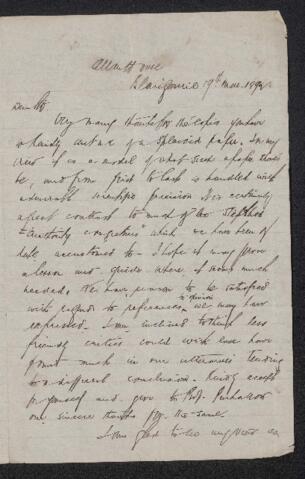 Blairgowrie 19th Mar. 1892
Dear Sir
Very many thanks for the copies you have
so kindly sent me of a splendid paper. In my
view it is a model of what such a paper should
be, and from first to last is handled with
admirable scientific precision. It is certainly
a great contrast to much of the
which we have been of
late accustomed to. I hope it may prove
a lesson and guide where it is so much
needed. We have reason to be satisfied
with regards to references to opinion we may have
expressed. I am inclined to think less
friendly critics could with ease have
found much in our utterances tending
to a different conclusion. Kindly accept
for yourself and give to Prof. Penhallow
our sincere thanks for the same.
I am glad to see